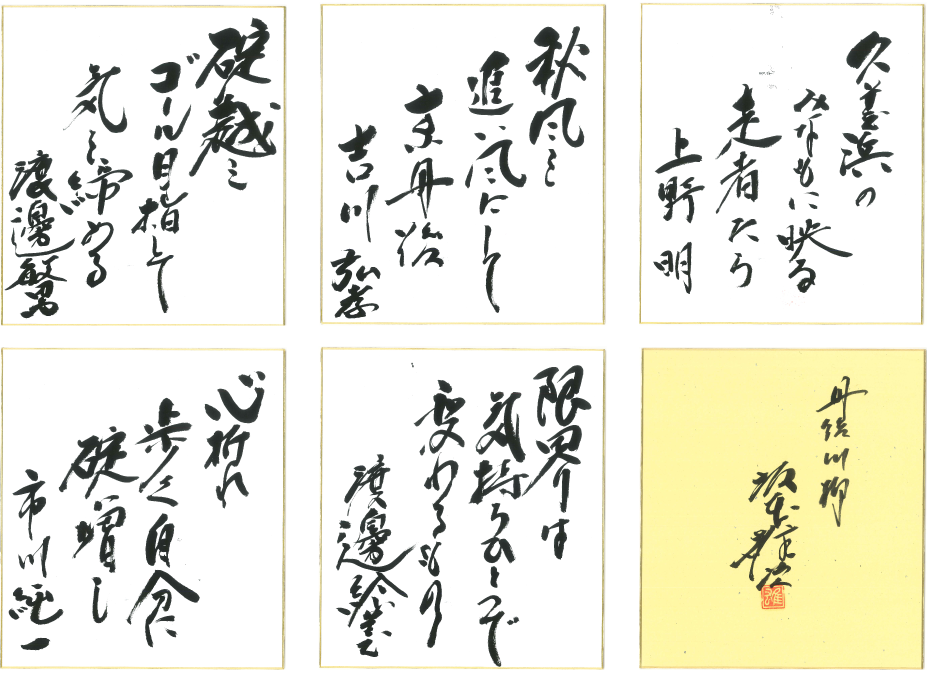 久美浜の
みなもに映る
走者たち
上野 明
秋風を
追い風にして
京丹後
吉川 弘孝
碇越え
ゴール目指して
気を締める
渡邊敏男
丹後川柳
坂本
限界は
気持ちひとつで
変わるもの
渡邊
心折れ
歩く自分に
碇増し
市川純一